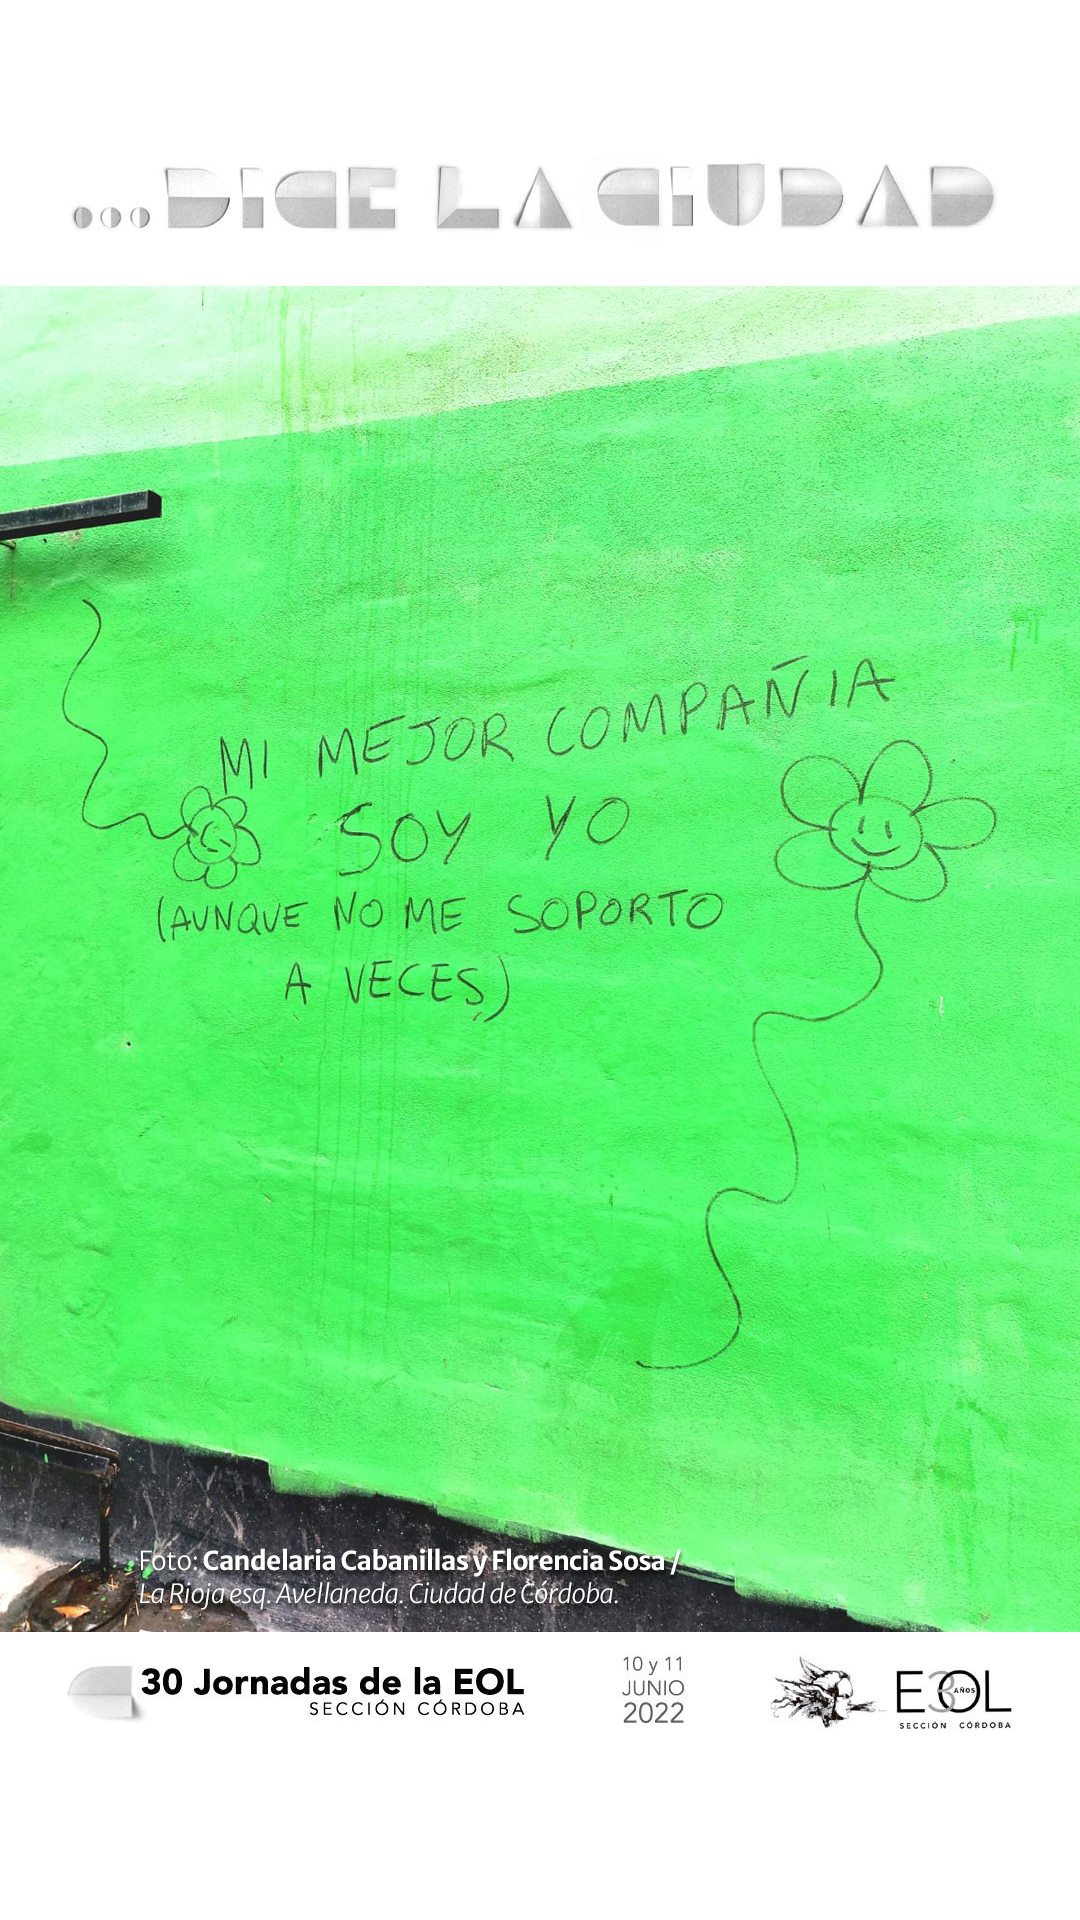 ...DICE LA CIUDAD
MI MEJOR COMPAÑIA
SOY YO
(AUNQUE NO ME SOPORTO
A VECES)
Foto: Candelaria Cabanillas y Florencia Sosa /
La Rioja esq. Avellaneda. Ciudad de Córdoba.
30 Jornadas de la EOL
SECCIÓN CÓRDOBA
10 y 11
JUNIO
2022
E30L
AÑOS
SECCIÓN CÓRDOBA